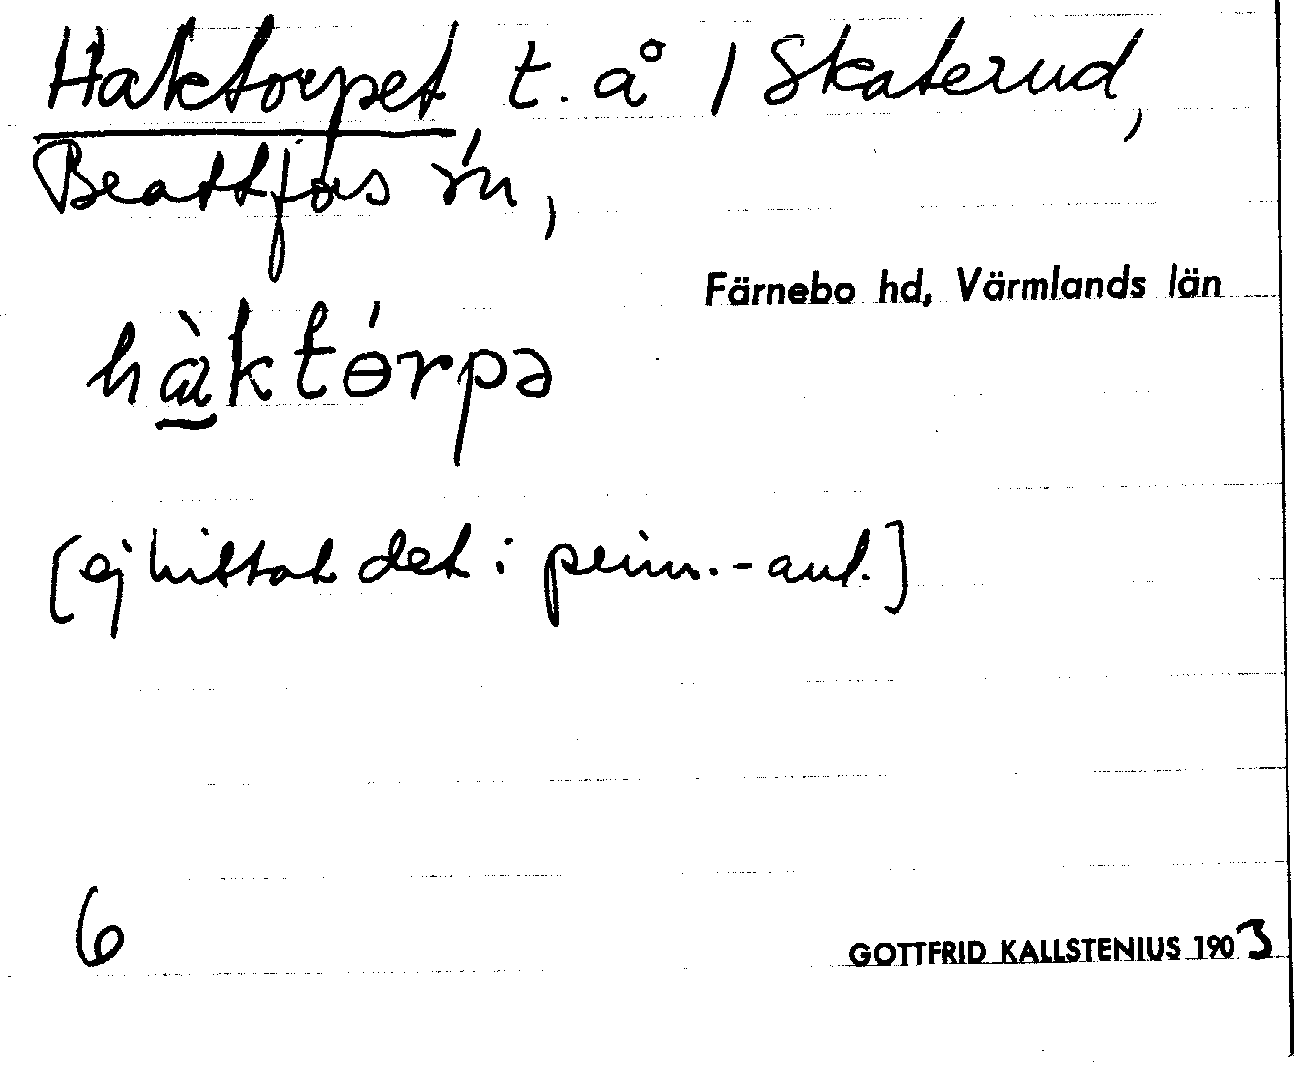 Haktorpet t. å 1 Skaterud,
Beattfors sn,
Färnebo hd, Värmlands län
hàktɵ́rpə
[ej hittat det i prim.-aul.]
6
GOTTFRID KALLSTENIUS 1903